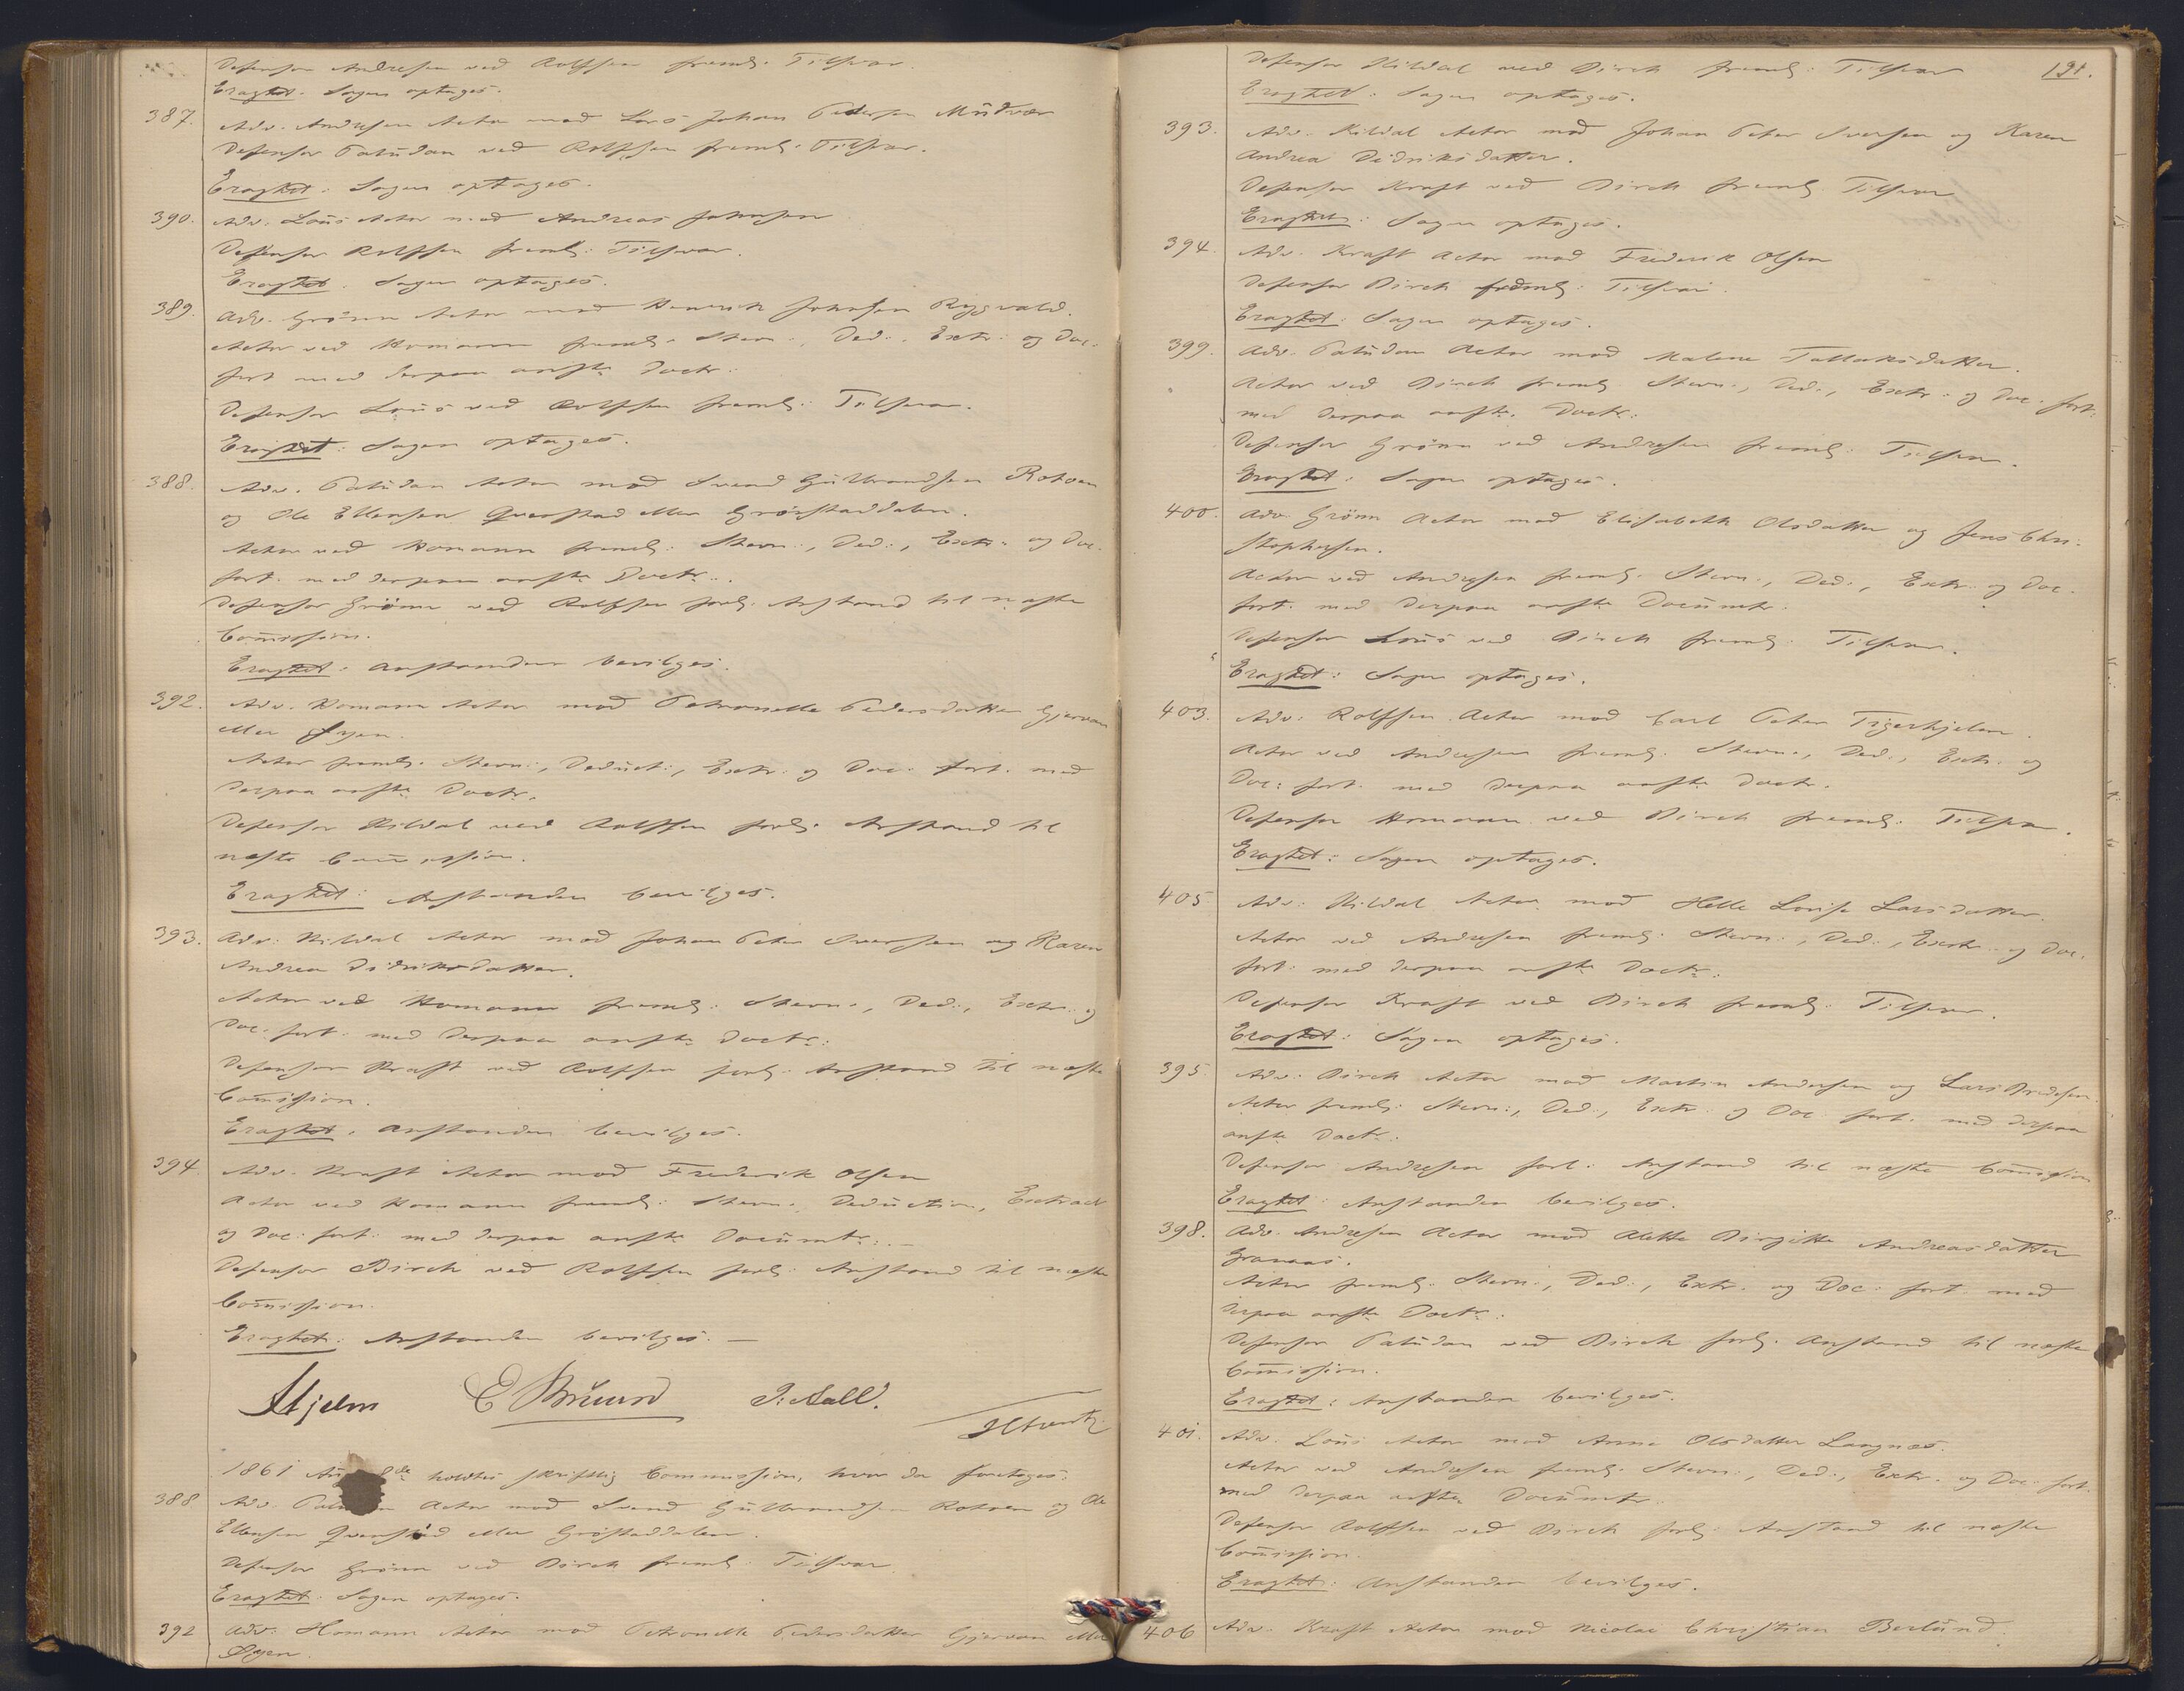 Defensor Andresen ved Rolfsen freml. Tilsvar.
Eragtet. Sagen optages.
387. Adv. Andresen Actor mod Lars Johan Pedersen
Defensor Paludan ved Rolfsen freml. Tilsvar.
Eragtet: Sagen optages.
390. Adv. Lous Actor mod Andreas Johnsen
Defensor Rolfsen freml: Tilsvar.
Eragtet. Sagen optages.
389. Adv. Grönn Actor mod Henrik Johnsen Rygvold.
Actor ved Homann freml. Stevn:, Ded:, Extr: og Doc.
fort. med derpaa anfte Doctr:
Defensor Lous ved Rolfsen freml: Tilsvar.
Eragtet: Sagen optages.
388. Adv. Paludan Actor mod Svend Gulbrandsen Rotoen
og Ole Ellensen Qvenstad eller Gröstaddalen.
Actor ved Homann freml: Stevn:, Ded:, Extr: og Doc.
fort. med derpaa anfte Doctr:.
Defensor Grönn ved Rolfsen forl: Anstand til næste
Commission.
Eragtet: Anstanden bevilges.
392. Adv. Homann Actor mod Petronelle Pedersdatter Gjervan
eller Øyen.
Actor freml. Stevn:, Deduct:, Extr: og Doc: fort. med
derpaa anfte Doctr.
Defensor Hildal ved Rolfsen forl: Anstand til
næste Commission.
Eragtet: Anstanden bevilges.
393. Adv: Hildal Actor mod Johan Peter Iversen og Karen
Andrea Didriksdatter.
Actor ved Homann freml: Stevn:, Ded:, Extr: og
Doc: fort: med derpaa anfte Doctr:
Defensor Kraft ved Rolfsen forl: Anstand til næste
Commission.
Eragtet. Anstanden bevilges.
394. Adv. Kraft Actor mod Frederik Olsen
Actor ved Homann freml: Stevn:, Deduction, Extract
og Doc: fort: med derpaa anfte Documtr:. —
Defensor Birch ved Rolfsen forl: Anstand til næste
Commission.
Eragtet: Anstanden bevilges. —
Hjelm E Bruun J: Aall.
1861 holdtes skriftlig Commission, hvor da foretoges:
388 Adv. Actor mod Svend Gulbrandsen Rotoen og Ole
Ellensen Qvenstad eller Gröstaddalen.
Defensor Grönn ved Birch freml: Tilsvar.
Eragtet: Sagen optages.
392 Adv. Homann Actor mod Petronelle Pedersdatter Gjervan eller
Øyen.
191.
Defensor Hildal ved Birch freml: Tilsvar
Eragtet: Sagen optages.
393. Adv. Hildal Actor mod Johan Peter Iversen og Karen
Andrea Didriksdatter.
Defensor Kraft ved Birch freml. Tilsvar
Eragtet: Sagen optages.
394. Adv. Kraft Actor mod Frederik Olsen
Defensor Birch freml: Tilsvar.
Eragtet: Sagen optages.
399. Adv. Paludan Actor mod Malene Tallaksdatter.
Actor ved Birch freml Stevn:, Ded:, Extr: og Doc. fort:
med derpaa anfte. Doctr:
Defensor Grönn ved Andresen freml: Tilsvar.
Eragtet: Sagen optages.
400. Adv. Grönn Actor mod Elisabeth Olsdatter og Jens Chri-
stophersen.
Actor ved Andresen freml. Stevn:, Ded:, Extr: og Doc.
fort. med derpaa anfte Documtr.
Defensor Lous ved Birch freml: Tilsvar.
Eragtet: Sagen optages.
403. Adv: Rolfsen Actor mod Carl Peter Tigerhjelm.
Actor ved Andresen freml: Stevn:, Ded:, Extr: og
Doc: fort. med derpaa anfte Doctr.
Defensor Homann ved Birch freml: Tilsvar.
Eragtet: Sagen optages.
405 Adv: Hildal Actor mod Helle Lovise Larsdatter.
Actor ved Andresen freml: Stevn:, Ded:, Extr: og Doc.
fort: med derpaa anfte Doctr:
Defensor Kraft ved Birch freml: Tilsvar.
Eragtet: Sagen optages.
395. Adv: Birch Actor mod Martin Andersen og Lars Bredesen.
Actor freml: Stevn:, Ded:, Extr: og Doc fort. med derpaa
anfte Doctr:.
Defensor Andresen forl: Anstand til næste Commission
Eragtet: Anstanden bevilges.
398. Adv. Andresen Actor mod Alette Birgitte Andreasdatter
Granaas.
Actor freml: Stevn:, Ded:, Extr. og Doc: fort. med
derpaa anfte Doctr:
Defensor Paludan ved Birch forl: Anstand til næste
Commission.
Eragtet: Anstanden bevilges.
401. Adv. Lous Actor mod Anne Olsdatter Langnæs.
Actor ved Andresen freml. Stevn:, Ded:, Extr. og Doc: fort.
med derpaa anfte Documtr.
Defensor Rolfsen ved Birch forl: Anstand til næste
Commission.
Eragtet: Anstanden bevilges.
406 Adv. Kraft Actor mod Nicolai Christian Berlund.